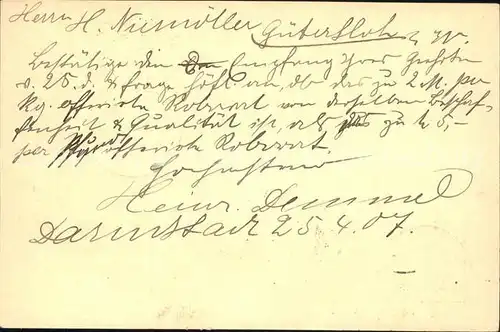 Herrn H. Niemöller Gütersloh i/W.
Bestätige den Empfang Ihres Geehrten
v. 25. d. & frage höfl. an, ob das zu 2 M. per
Kg. offerirte Rohwert von derselben Beschaf-
fenheit & Qualität ist, als das zu M 5,-
per Pfund offerirte Rohwert.
Hochachtend
Heinr. Demmel
Darmstadt 25.4.07.